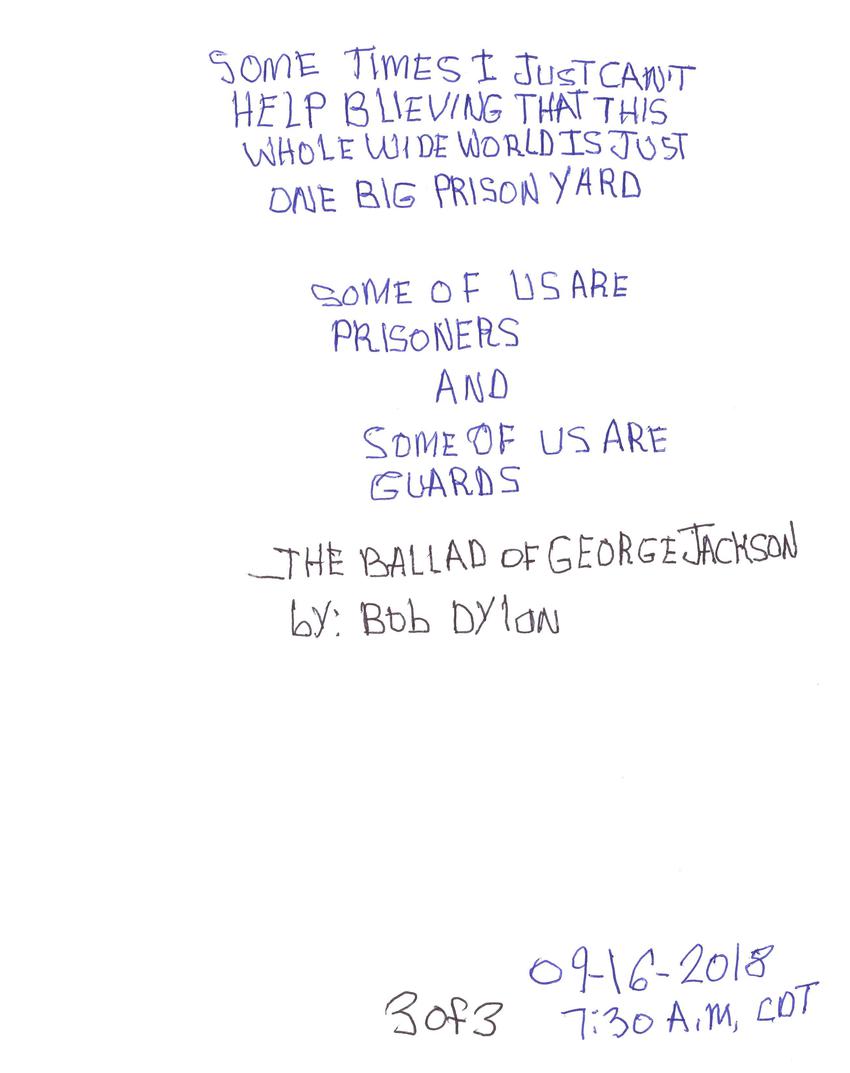 SOME TIMES I JUST CAN'T
HELP BLIEVING THAT THIS
WHOLE WIDE WORLD IS JUST
ONE BIG PRISON YARD
SOME OF US ARE
PRISONERS
AND
SOME OF US ARE
GUARDS
_THE BALLAD OF GEORGE JACKSON
by: Bob DYlON
09-16-2018
3 of 3 7:30 A.M, CDT